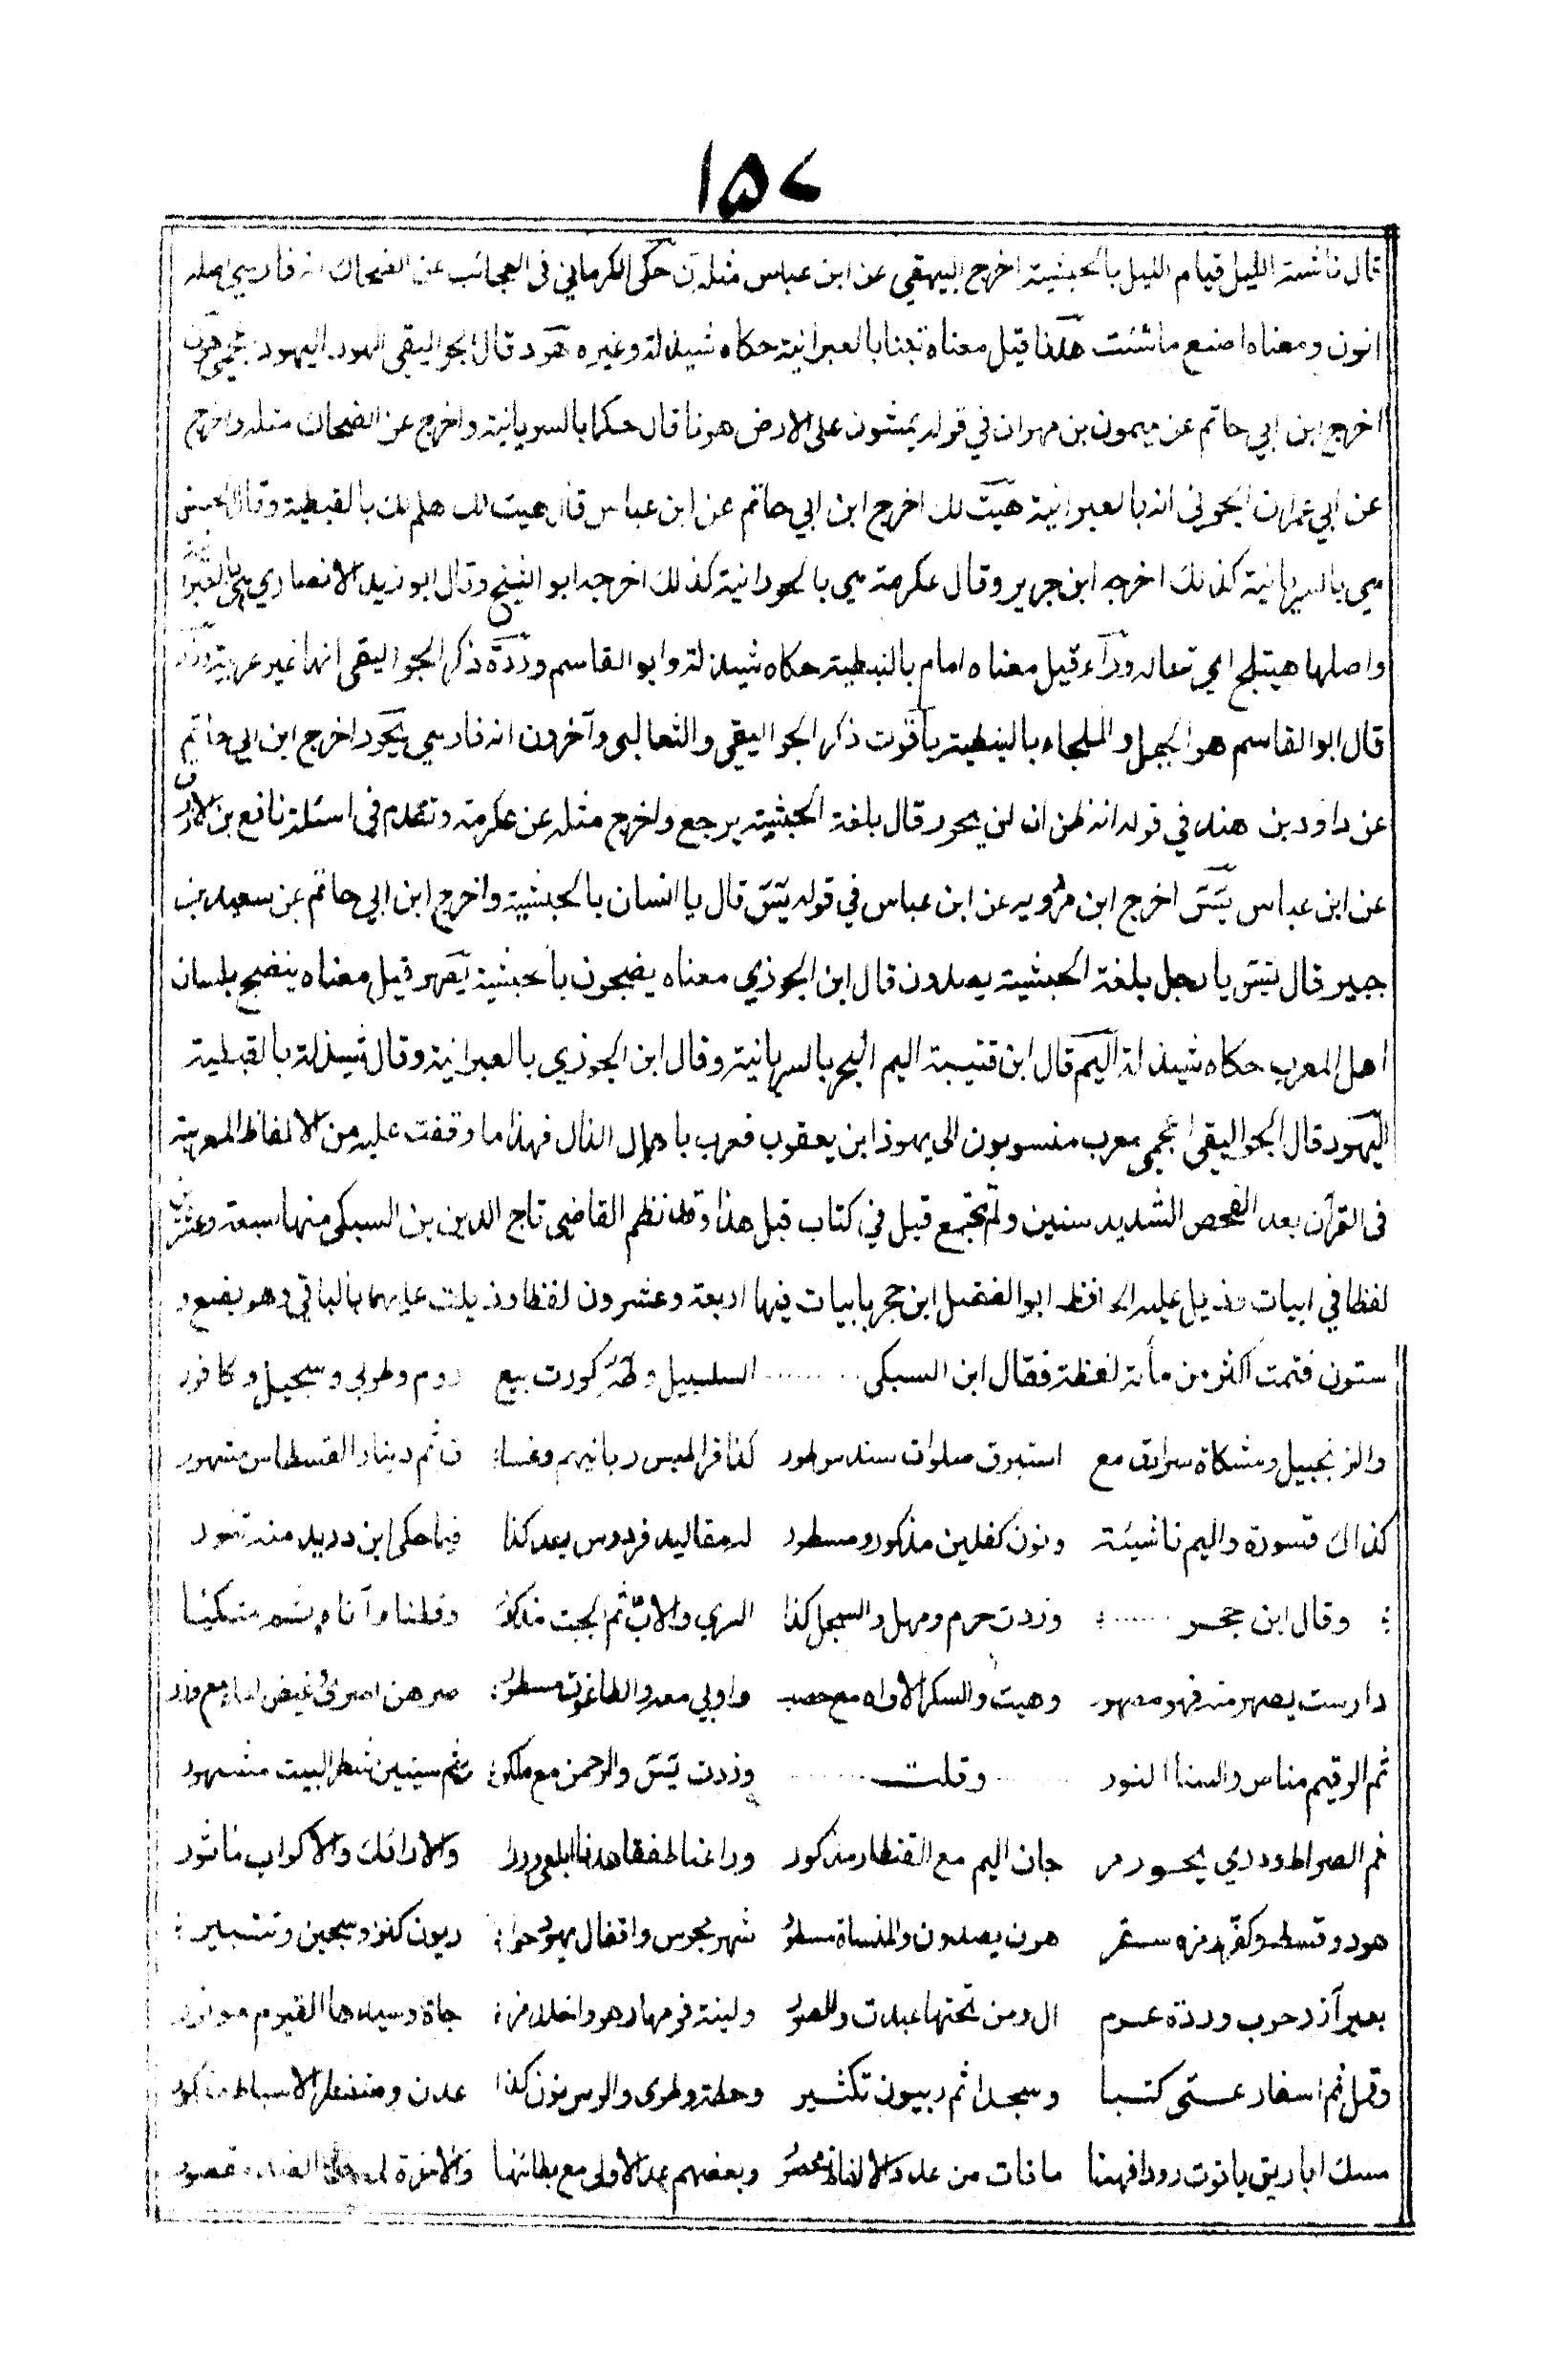 ١٥٧
قال ناشئة الليل قيام الليل بالحبشية اخرج البيهقي عن ابن عباس مثله ن حكى الكرماني في العجائب عن الضحاك انه فارسي اصله
انون ومعناه اصنع ما شئت هدنا قيل معناه تبنا بالعبرانية حكاه شيذلة وغيره هود قال الجواليقي الهود اليهود عجمي هون
اخرج ابن ابي حاتم عن ميمون بن مهران في قوله يمشون على الارض هونا قال حكما بالسريانية واخرج عن الضحاك مثله واخرج
عن ابي عمران الجوني انه بالعبرانية هيت لك اخرج ابن ابي حاتم عن ابن عباس قال هيت لك هلم لك بالقبطية وقال الحسن
هي بالسريانية كذلك اخرجه ابن جرير وقال عكرمة هي بالحورانية كذلك اخرجه ابو الشيخ وقال ابو زيد الانصاري هي بالعبرانية
واصلها هيتلج اي تعاله وراء قيل معناه امام بالنبطية حكاه شيذلة وابو القاسم وردة ذكر الجواليقي انها غير عربية وزر
قال ابو القاسم هو الجبل والملجاء بالنبطية ياقوت ذكر الجواليقي والثعالبى وآخرون انه فارسي يحور اخرج ابن ابي حاتم
عن داود بن هند في قوله انه ظن ان لن يحور قال بلغة الحبشية يرجع واخرج مثله عن عكرمة وتقدم في اسئلة نافع بن الازرق
عن ابن عباس يٰسٓ اخرج ابن مردويه عن ابن عباس في قوله يٰسٓ قال يا انسان بالحبشية واخرج ابن ابي حاتم عن سعيد بن
جبير قال يٰسٓ يا رجل بلغة الحبشية يصدون قال ابن الجوزي معناه يضجون بالحبشية يصهر قيل معناه ينضج بلسان
اهل المغرب حكاه شيذلة اليم قال ابن قتيبة اليم البحر بالسريانية وقال ابن الجوزي بالعبرانية وقال شيذلة بالقبطية
اليهود قال الجواليقي اعجمي معرب منسوبون الى يهوذ ابن يعقوب فعرب باهمال الذال فهذا ما وقفت عليه من الالفاظ المعربة
في القرآن بعد الفحص الشديد سنين ولم تجتمع قبل في كتاب قبل هذا وقد نظم القاضي تاج الدين بن السبكي منها سبعة وعشرين
لفظا في ابيات وذيل عليه الحافظ ابو الفضل ابن حجر بابيات فيها اربعة وعشرون لفظا وذيلت عليهما بالباقي وهو بضع و
ستون فتمت اكثر من مأة لفظة فقال ابن السبكي السلسبيل وطٰهٰ كورت بيع روم وطوبى وسجيل وكافور
والزنجبيل ومشكاة سرادق مع استبرق صلوات سندس طور كذا قراطيس ربانيهم وغسا ق ثم دينار القسطاس مشهور
كذاك قسورة واليم ناشئة ونون كفلين مذكور ومسطور له مقاليد فردوس يعد كذا فيما حكى ابن دريد منه تنور
وقال ابن حجر وزدت حرم ومهل والسجل كذا السري والاب ثم الجبت مذكور وقطنا وآناه ثم متكئا
دارست يصهر منه فهو مصهور وهيت والسكر الاواه مع حصب واوبي معه والطاغوت مسطور صرهن اصري وغيض الماء مع وزر
ثم الرقيم مناص والسنا النور وقلت وزدت يٰسٓ والرحمن مع ملكو ت ثم سينين شطر البيت مشهور
ثم الصراط ودري يحور ومر جان اليم مع القنطار مذكور وراعنا طفقا هدنا ابلعي ورا والارائك والاكواب ماثور
هود وقسط وكفر رمزه سقر هون يصدون والمنساة مسطور شهر مجوس واقفال يهود حوا ريون كنز وسجين وتتبير
بعير آزر حوب وردة عرم ال ومن تحتها عبدت والصور ولينة فومها رهو واخلد مز جاة وسيدها القيوم موفور
وقمل ثم اسفار عنى كتبا وسجدا ثم ربيون تكثير وحطة وطوى والرس نون كذا عدن ومنفطر الاسباط مذكور
مسك اباريق ياقوت رووا فهنا ما فات من عدد الالفاظ محصور وبعضهم عد الاولى مع بطائنها والاخرة